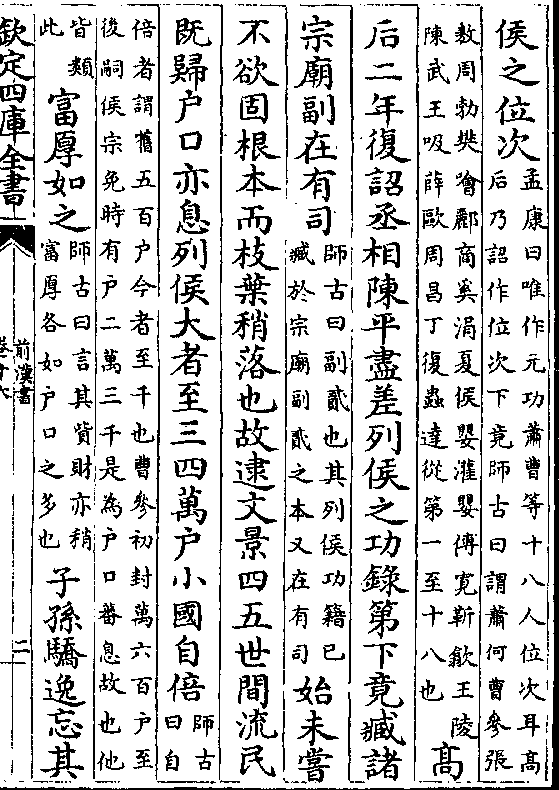 侯之位次孟康曰唯作元功蕭曹等十八人位次耳髙后乃詔作位次下竟師古曰謂蕭何曹參張
敖周勃樊噲酈商奚涓夏侯嬰灌嬰傅寛靳歙王陵陳武王吸薛歐周昌丁復蟲達從第一至十八也髙
后二年復詔丞相陳平盡差列侯之功錄第下竟臧諸
宗廟副在有司師古曰副貳也其列侯功籍已臧於宗廟副貳之本又在有司始未嘗
不欲固根本而枝葉稍落也故逮文景四五世間流民
既歸户口亦息列侯大者至三四萬户小國自倍師古曰自
倍者謂舊五百户今者至千也曹參初封萬六百户至後嗣侯宗免時有户二萬三千是為户口蕃息故也他
皆類此富厚如之師古曰言其貲財亦稍富厚各如户口之多也子孫驕逸忘其
欽定四庫全書
前漢書
卷十六
二